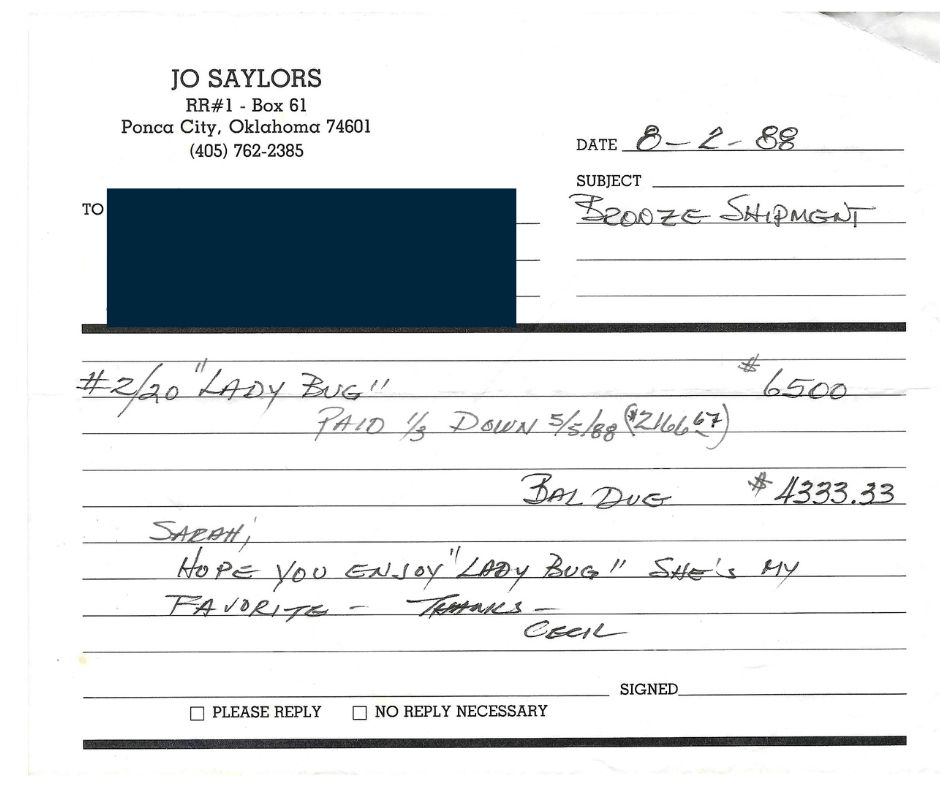 JO SAYLORS
RR#1 - Box 61
Ponca City, Oklahoma 74601
(405) 762-2385
DATE 8-2-88
SUBJECT
BRONZE SHIPMENT
TO
#2/20 "LADY BUG" $6500
PAID 1/3 DOWN 5/5/88 ($2166.67)
BAL DUE $4333.33
SARAH,
HOPE YOU ENJOY "LADY BUG" SHE'S MY
FAVORITE - THANKS -
CECIL
SIGNED
PLEASE REPLY NO REPLY NECESSARY